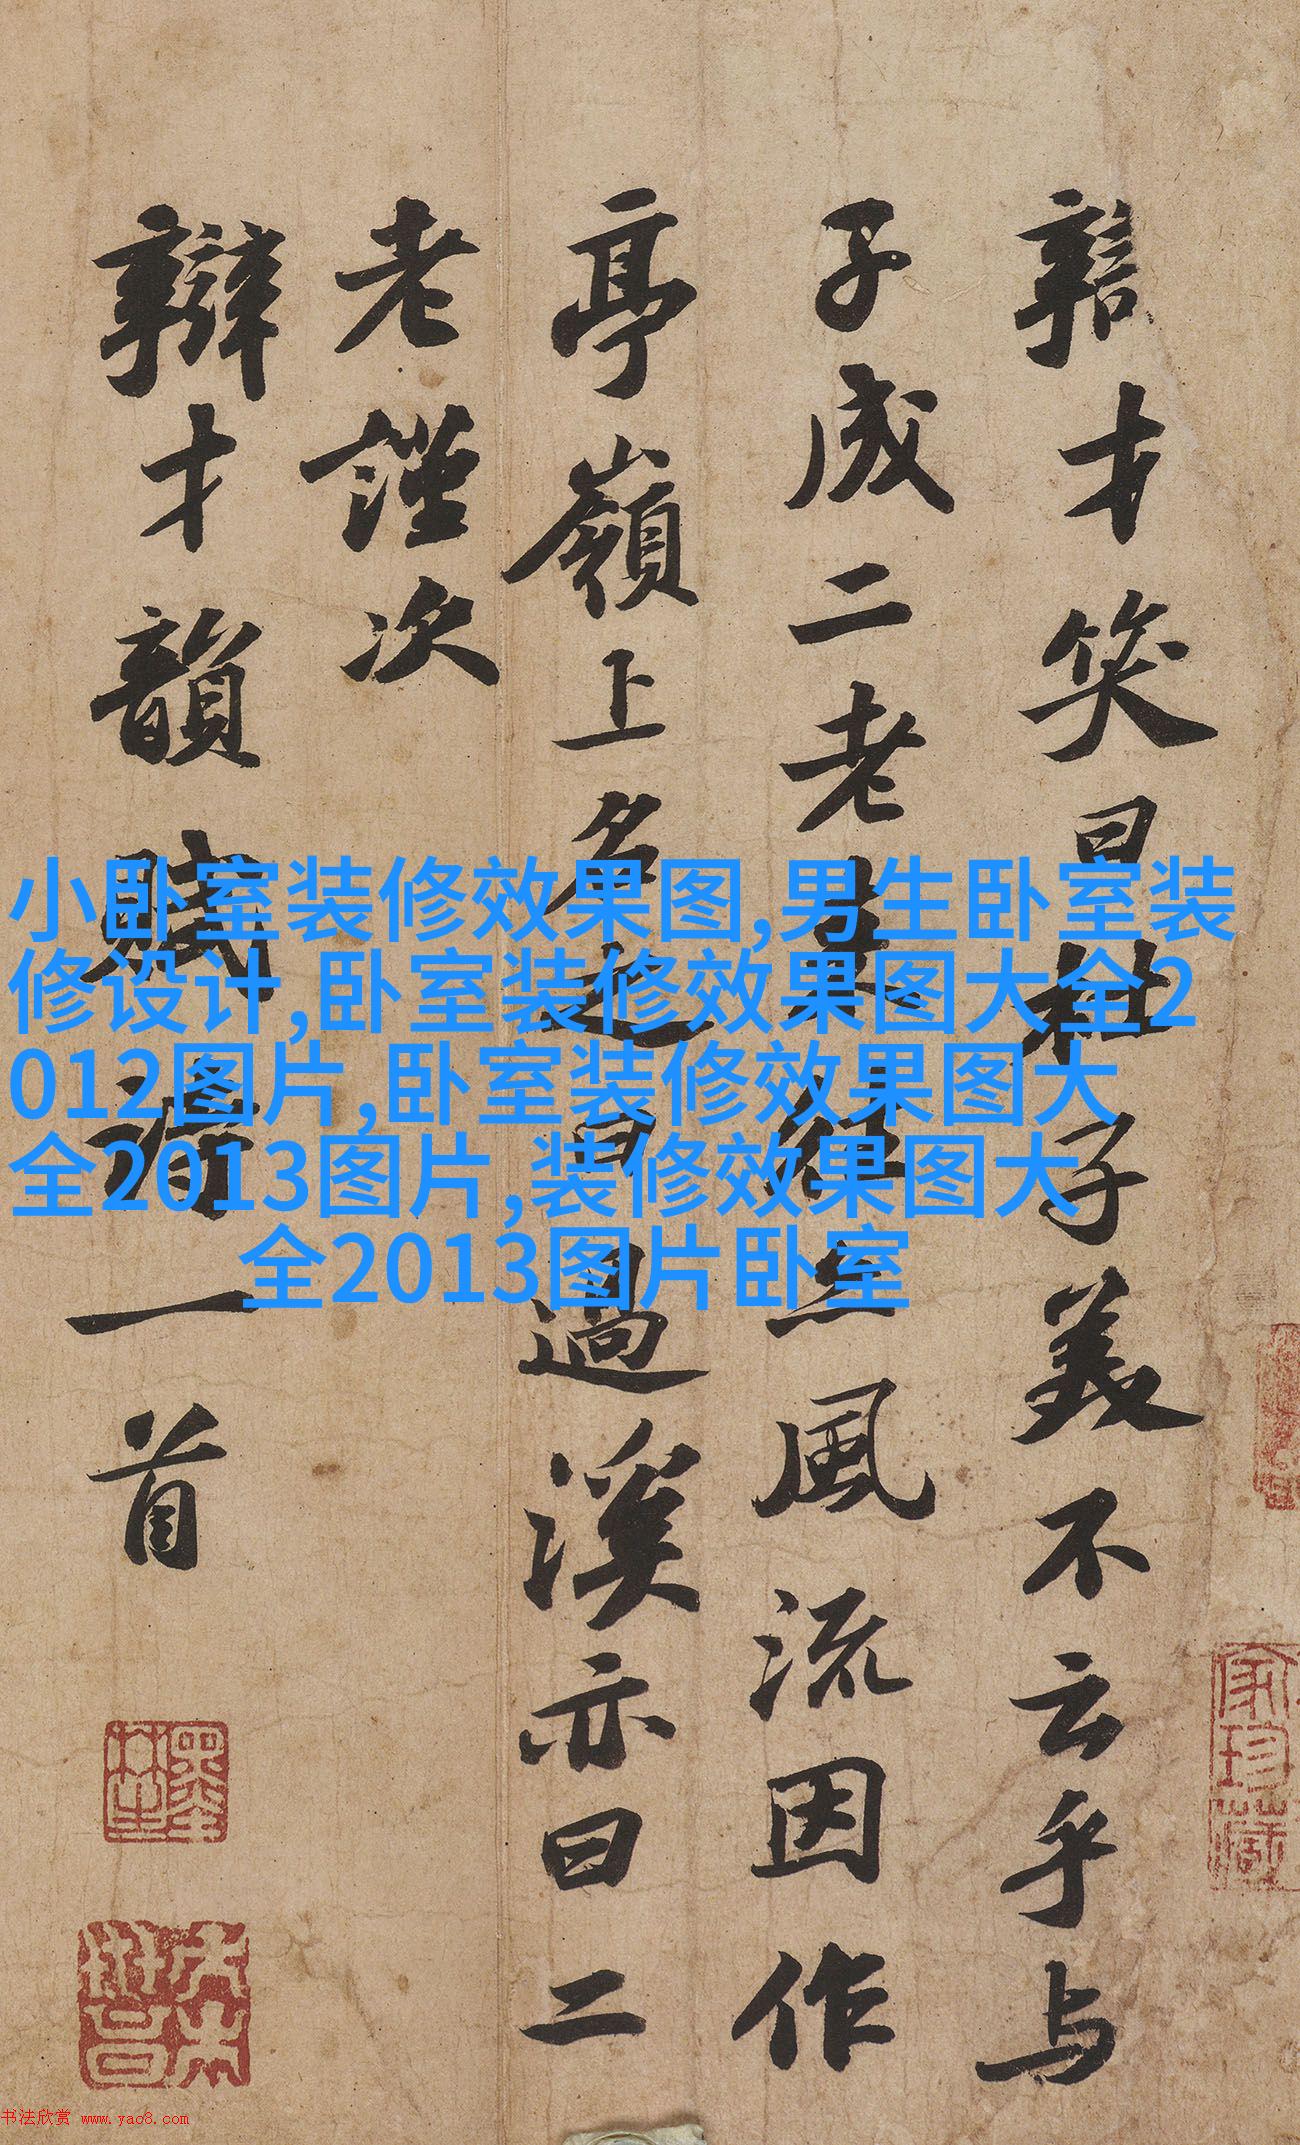 辯才笑曰杜子美不云乎与
子成二老来往亦風流因作
亭嶺上名之曰過溪亦曰二
老謹次
辯才韻賦詩一首
小卧室装修效果图,男生卧室装
修设计,卧室装修效果图大全2
012图片,卧室装修效果图大
全2013图片,装修效果图大
全2013图片卧室
家珍藏
书法欣赏 www.yac8.com